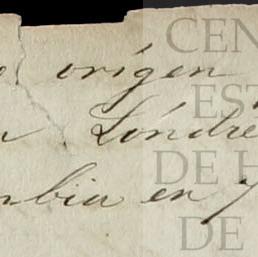 orígen
Lóndre
mbia en 7
CEN
EST
DE H
DE